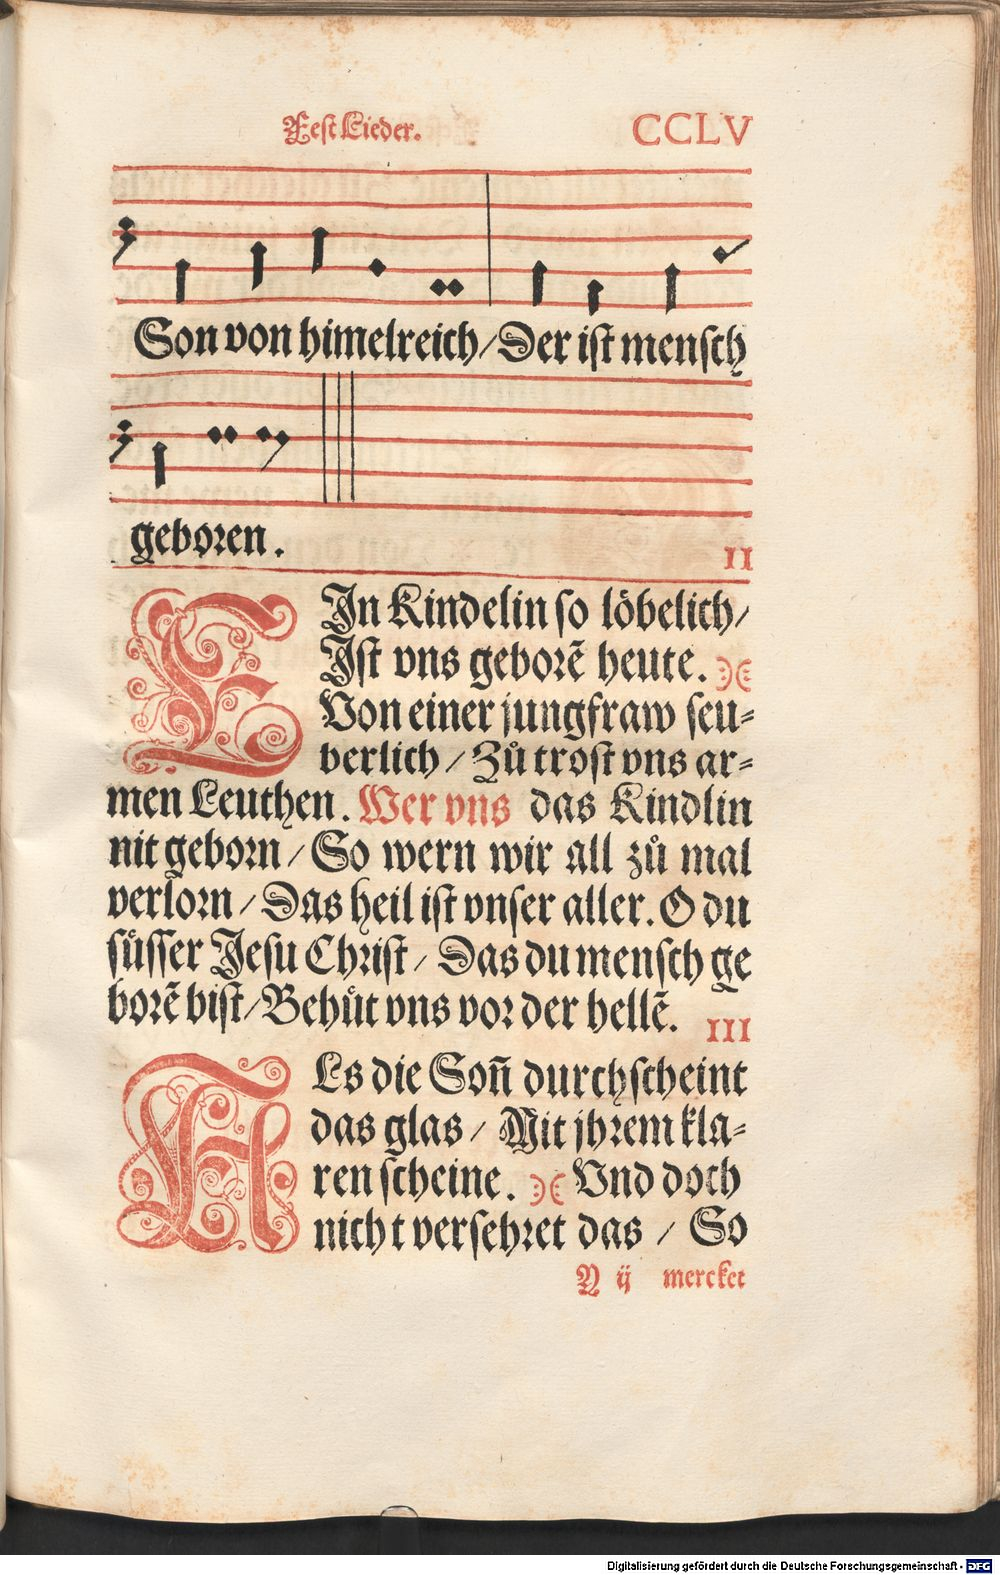 Fest Lieder. CCLV
Son von himelreich / Der ist mensch
geboren.
II
EIn Kindelin so löbelich /
Ist vns geborē heute.
Von einer jungfraw seu=
berlich / Zů trost vns ar=
men Leuthen. Wer vns das Kindlin
nit geborn / So wern wir all zů mal
verlorn / Das heil ist vnser aller. O du
süsser Jesu Christ / Das du mensch ge
borē bist / Behüt vns vor der hellē.
III
ALs die Son̄ durchscheint
das glas / Mit jhrem kla=
ren scheine. Vnd doch
nicht versehret das / So
Y ij mercket
Digitalisierung gefördert durch die Deutsche Forschungsgemeinschaft - DFG